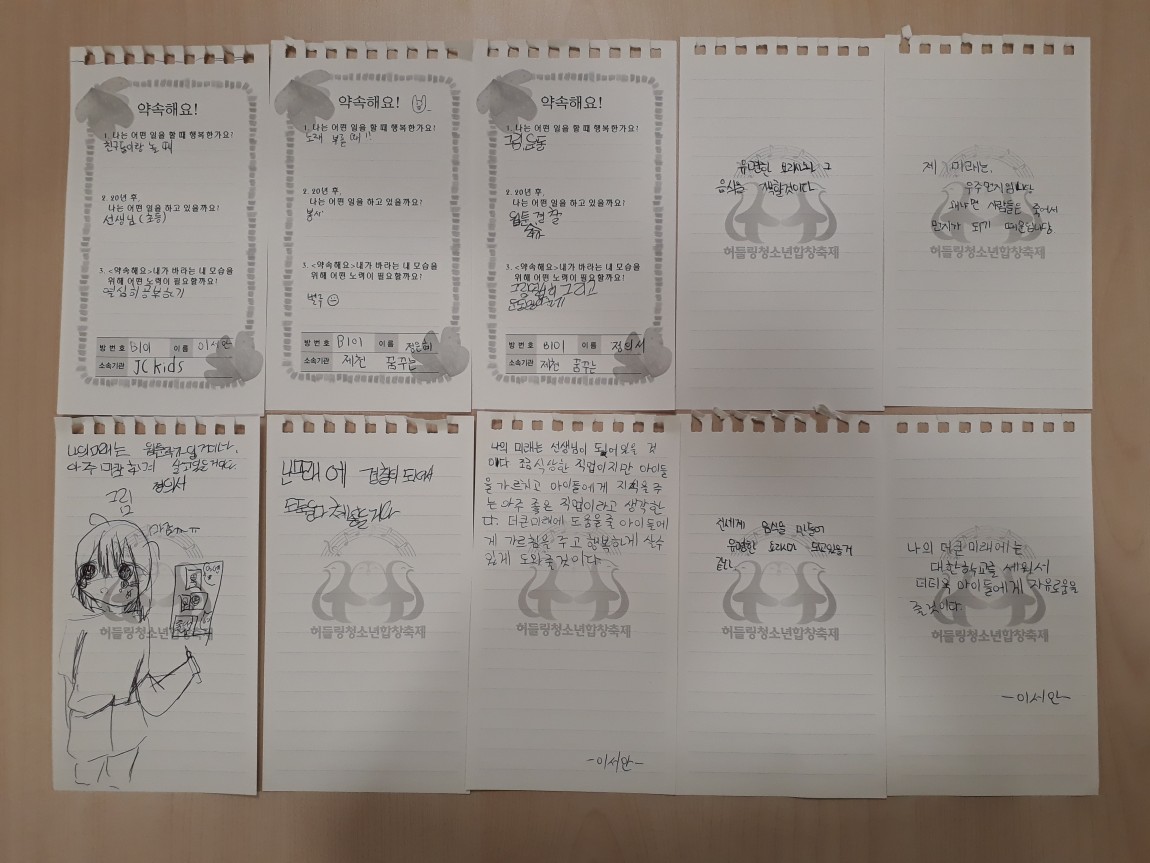 약속해요!
1. 나는 어떤 일을 할 때 행복한가요?
친구들이랑 놀 때
2. 20년 후,
나는 어떤 일을 하고 있을까요?
선생님 (초등)
3. <약속해요>내가 바라는 내 모습을
위해 어떤 노력이 필요할까요?
열심히 공부하기
방 번 호 B101 이 름 이서안
소속기관 JC kids
약속해요!
1. 나는 어떤 일을 할 때 행복한가요?
노래 부를 때!!
2. 20년 후,
나는 어떤 일을 하고 있을까요?
봉사
3. <약속해요>내가 바라는 내 모습을
위해 어떤 노력이 필요할까요?
방 번 호 B101 이 름 정은혜
소속기관 제천 꿈꾸는
약속해요!
1. 나는 어떤 일을 할 때 행복한가요?
그림 운동
2. 20년 후,
나는 어떤 일을 하고 있을까요?
웹툰 경찰
3. <약속해요>내가 바라는 내 모습을
위해 어떤 노력이 필요할까요?
그림 열심히 그리고
방 번 호 B101 이 름 정의서
소속기관 제천 꿈꾸는
유명한 요리사가 그
음식을 것이다
허들링청소년합창축제
제 미래는,
우주먼지입니당
왜냐면 사람들은 죽어서
먼지가 되기 때문입니당
허들링청소년합창축제
나의 미래는 웹툰작가
아주 살고있을거다.
정의서
그림
허들링청소년합창축제
난 미래에 경찰이 되어서
도둑을 다
허들링청소년합창축제
나의 미래는 선생님이 되어있을 것
이다 조금 식상한 직업이지만 아이들
을 가르치고 아이들에게 지식을 주
는 아주 좋은 직업이라고 생각한
다. 더큰미래에 도움을줄 아이들에
게 가르침을 주고 행복하게 살수
있게 도와줄것이다
허들링청소년합창축제
-이서안-
전세계 음식을 만들어
유명한 요리사가 되고있을거
같다
허들링청소년합창축제
나의 더큰미래에는
대한학교를 세워서
더더욱 아이들에게 자유로움을
줄것이다
허들링청소년합창축제
-이서안-